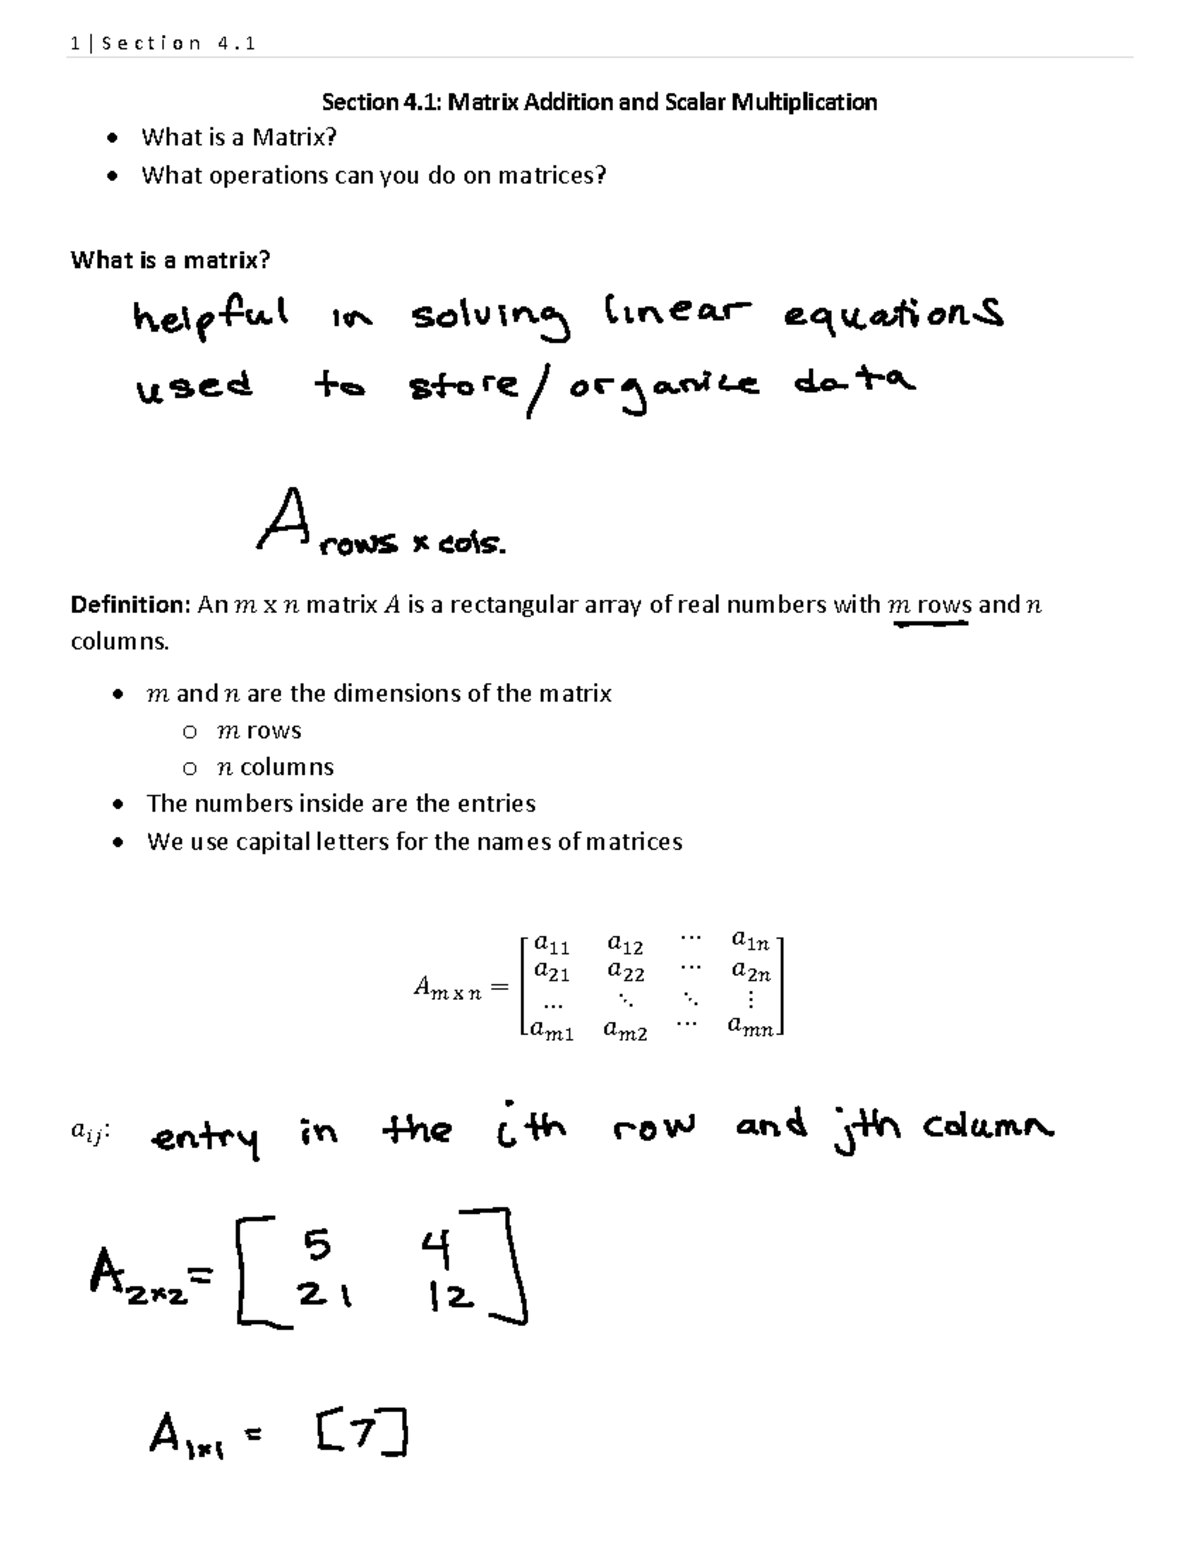 1 | Section 4.1
Section 4.1: Matrix Addition and Scalar Multiplication
• What is a Matrix?
• What operations can you do on matrices?
What is a matrix?
helpful in solving linear equations
used to store/organize data
A rows x cols.
Definition: An m x n matrix A is a rectangular array of real numbers with m rows and n
columns.
• m and n are the dimensions of the matrix
○ m rows
○ n columns
• The numbers inside are the entries
• We use capital letters for the names of matrices
a₁₁ a₁₂ ⋯ a₁ₙ
a₂₁ a₂₂ ⋯ a₂ₙ
A m x n = [ … ⋱ ⋱ ⋮ ]
aₘ₁ aₘ₂ ⋯ aₘₙ
aᵢⱼ: entry in the ith row and jth column
5 4
A 2x2 = [ 21 12 ]
A 1x1 = [7]